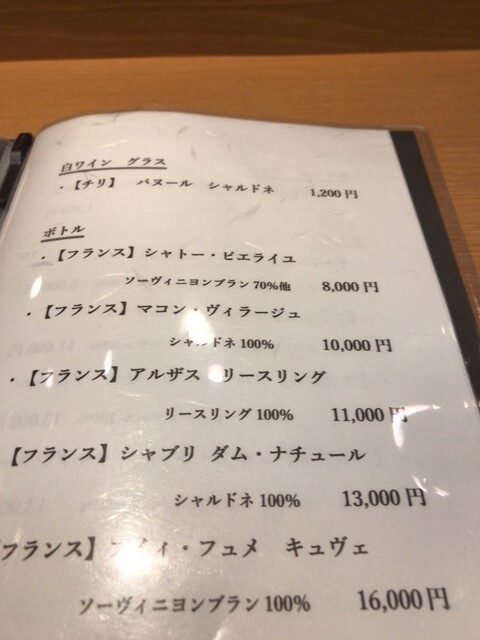 白ワイン グラス
・【チリ】 バヌール シャルドネ 1,200円
ボトル
・【フランス】シャトー・ピエライユ
ソーヴィニヨンブラン70%他 8,000円
・【フランス】マコン・ヴィラージュ
シャルドネ100% 10,000円
・【フランス】アルザス リースリング
リースリング100% 11,000円
【フランス】シャブリ ダム・ナチュール
シャルドネ100% 13,000円
フランス】 フュメ キュヴェ
ソーヴィニヨンブラン100% 16,000円